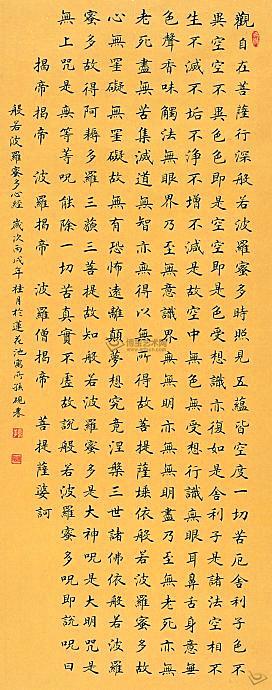 觀自在菩薩行深般若波羅蜜多時照見五蘊皆空度一切苦厄舍利子色不
異空空不異色色即是空空即是色受想行識亦復如是舍利子是諸法空相不
生不滅不垢不淨不增不減是故空中無色無受想行識無眼耳鼻舌身意無
色聲香味觸法無眼界乃至無意識界無無明亦無無明盡乃至無老死亦無
老死盡無苦集滅道無智亦無得以無所得故菩提薩埵依般若波羅蜜多故
心無罣礙無罣礙故無有恐怖遠離顛夢想究竟涅槃三世諸佛依般若波羅
蜜多故得阿耨多羅三藐三菩提故知般若波羅蜜多是大神咒是大明咒是
無上咒是無等等咒能除一切苦真實不虛故說般若波羅蜜多咒即說咒曰
揭帝揭帝 波羅揭帝 波羅僧揭帝 菩提薩婆訶
般若波羅蜜多心經 歲次丙戌年桂月於蓮花池
博宝艺术网